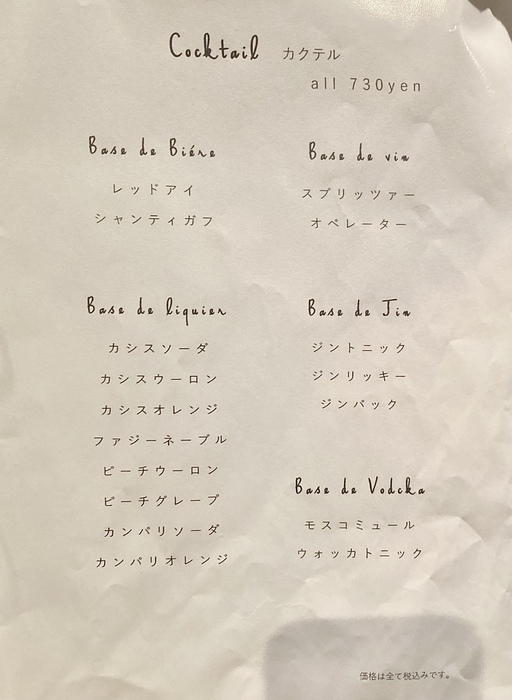 Cocktail カクテル
all 730yen
Base de Biére
レッドアイ
シャンティガフ
Base de vin
スプリッツァー
オペレーター
Base de liquier
カシスソーダ
カシスウーロン
カシスオレンジ
ファジーネーブル
ピーチウーロン
ピーチグレープ
カンパリソーダ
カンパリオレンジ
Base de Jin
ジントニック
ジンリッキー
ジンバック
Base de Vodcka
モスコミュール
ウォッカトニック
価格は全て税込みです。